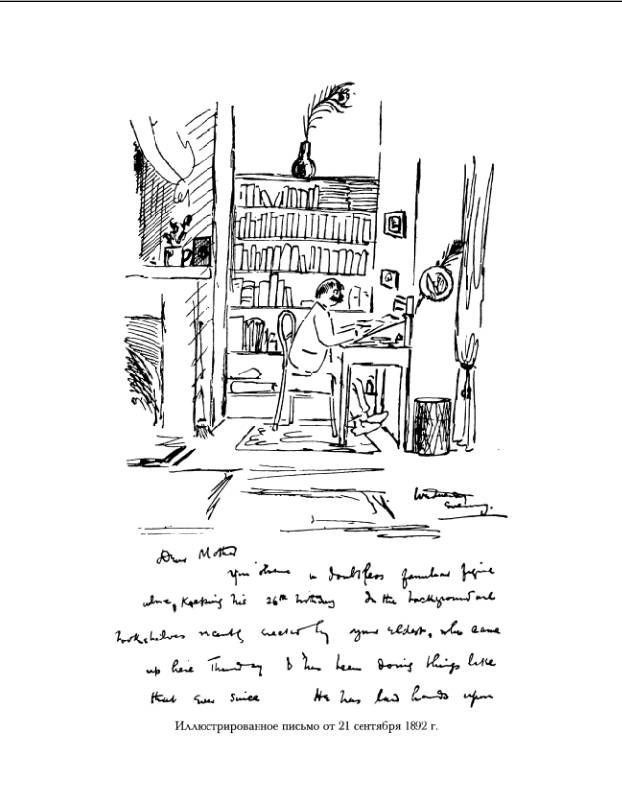 Wednesday
Evening.
Dear Mother
You observe a doubtless familiar figure
above, keeping his 26th birthday In the background are
bookshelves recently erected by your eldest, who came
up here Thursday & has been doing things like
that ever since He has laid hands upon
Иллюстрированное письмо от 21 сентября 1892 г.